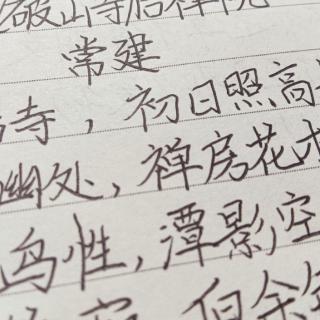 破山寺后禅院
常建
寺，初日照高
幽处，禅房花木
鸟性，潭影空
但余